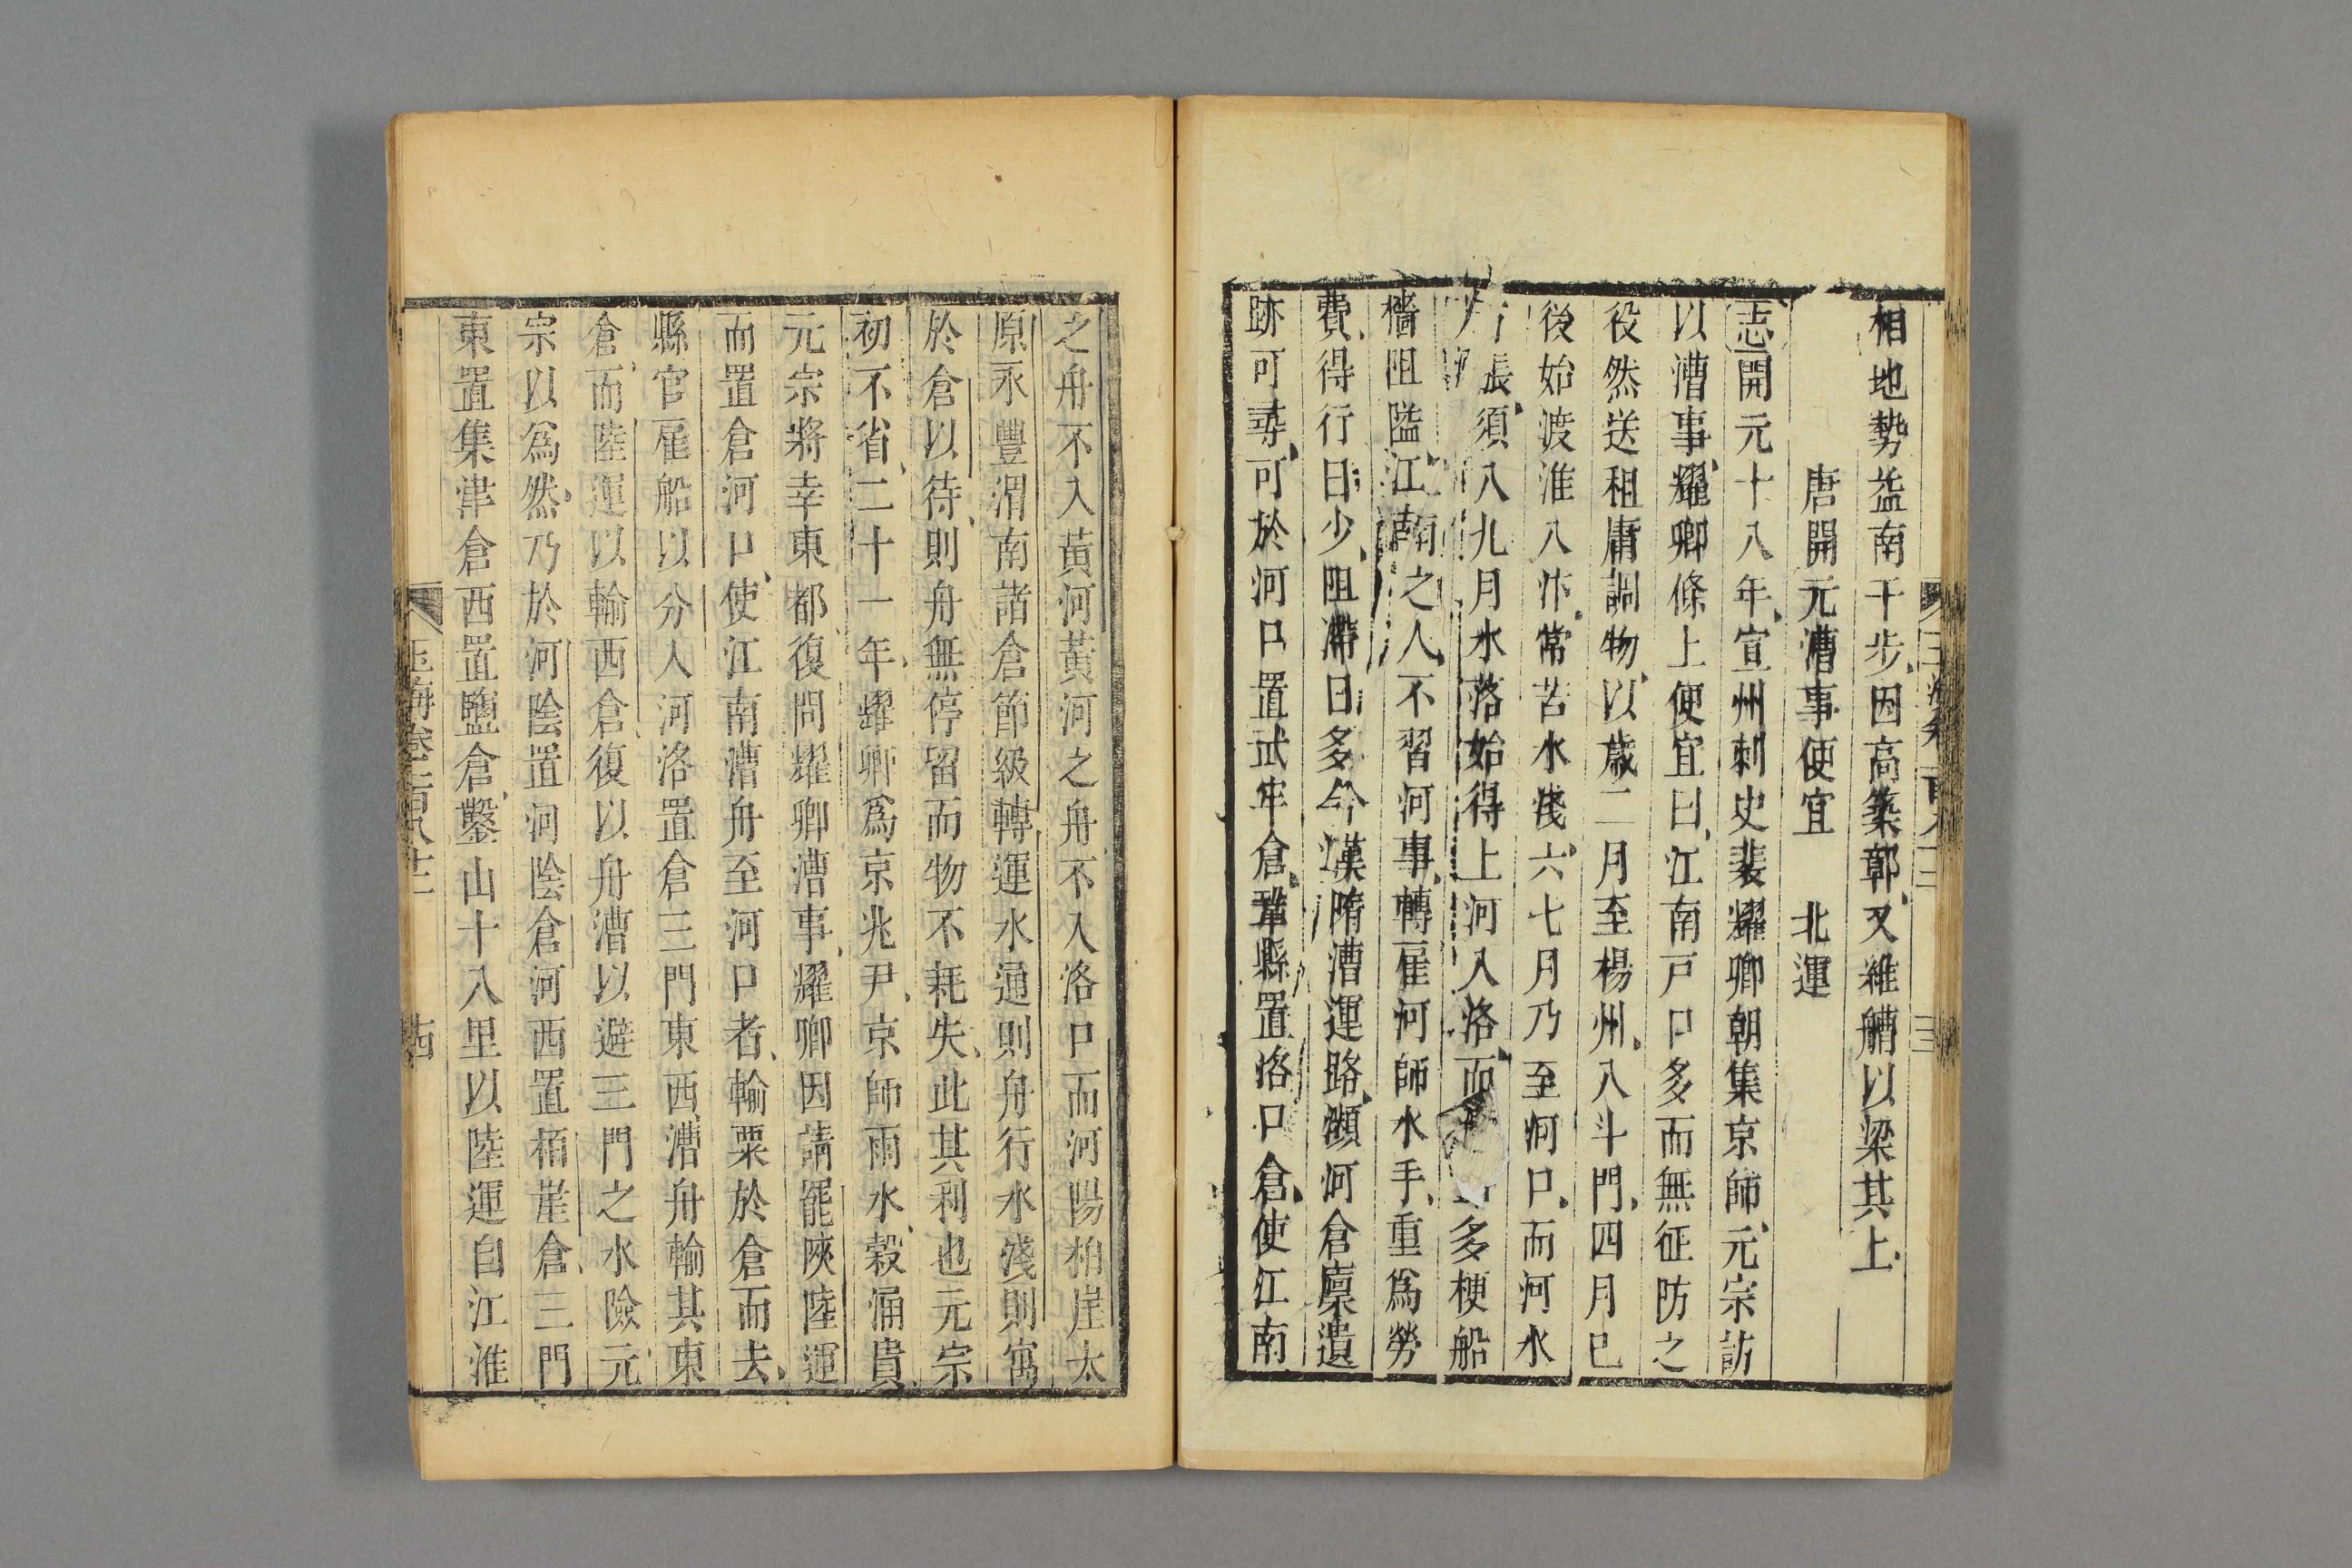 相地勢益南千步因高築鄣又維艚以梁其上
唐開元漕事便宜　北運
志開元十八年宣州刺史裴耀卿朝集京師元宗訪
以漕事耀卿條上便宜曰江南戸口多而無征防之
役然送租庸調物以歳二月至楊州入斗門四月已
後始渡淮入汴常苦水淺六七月乃至河口而河水
張須八九月水落始得上河入洛而多梗船
檣阻隘江南之人不習河事轉雇河師水手重爲勞
費得行日少阻滯日多今漢隋漕運路瀕河倉廩遺
跡可尋可於河口置武牢倉鞏縣置洛口倉使江南
之舟不入黃河黃河之舟不入洛口而河陽柏崖太
原永豐渭南諸倉節級轉運水通則舟行水淺則寓
於倉以待則舟無停留而物不耗失此其利也元宗
初不省二十一年耀卿爲京兆尹京師雨水穀涌貴
元宗將幸東都復問耀卿漕事耀卿因請罷陝陸運
而置倉河口使江南漕舟至河口者輸粟於倉而去
縣官雇船以分入河洛置倉三門東西漕舟輸其東
倉而陸運以輸西倉復以舟漕以避三門之水險元
宗以爲然乃於河陰置河陰倉河西置栢崖倉三門
東置集津倉西置鹽倉鑿山十八里以陸運自江淮
玉海卷一百八十二